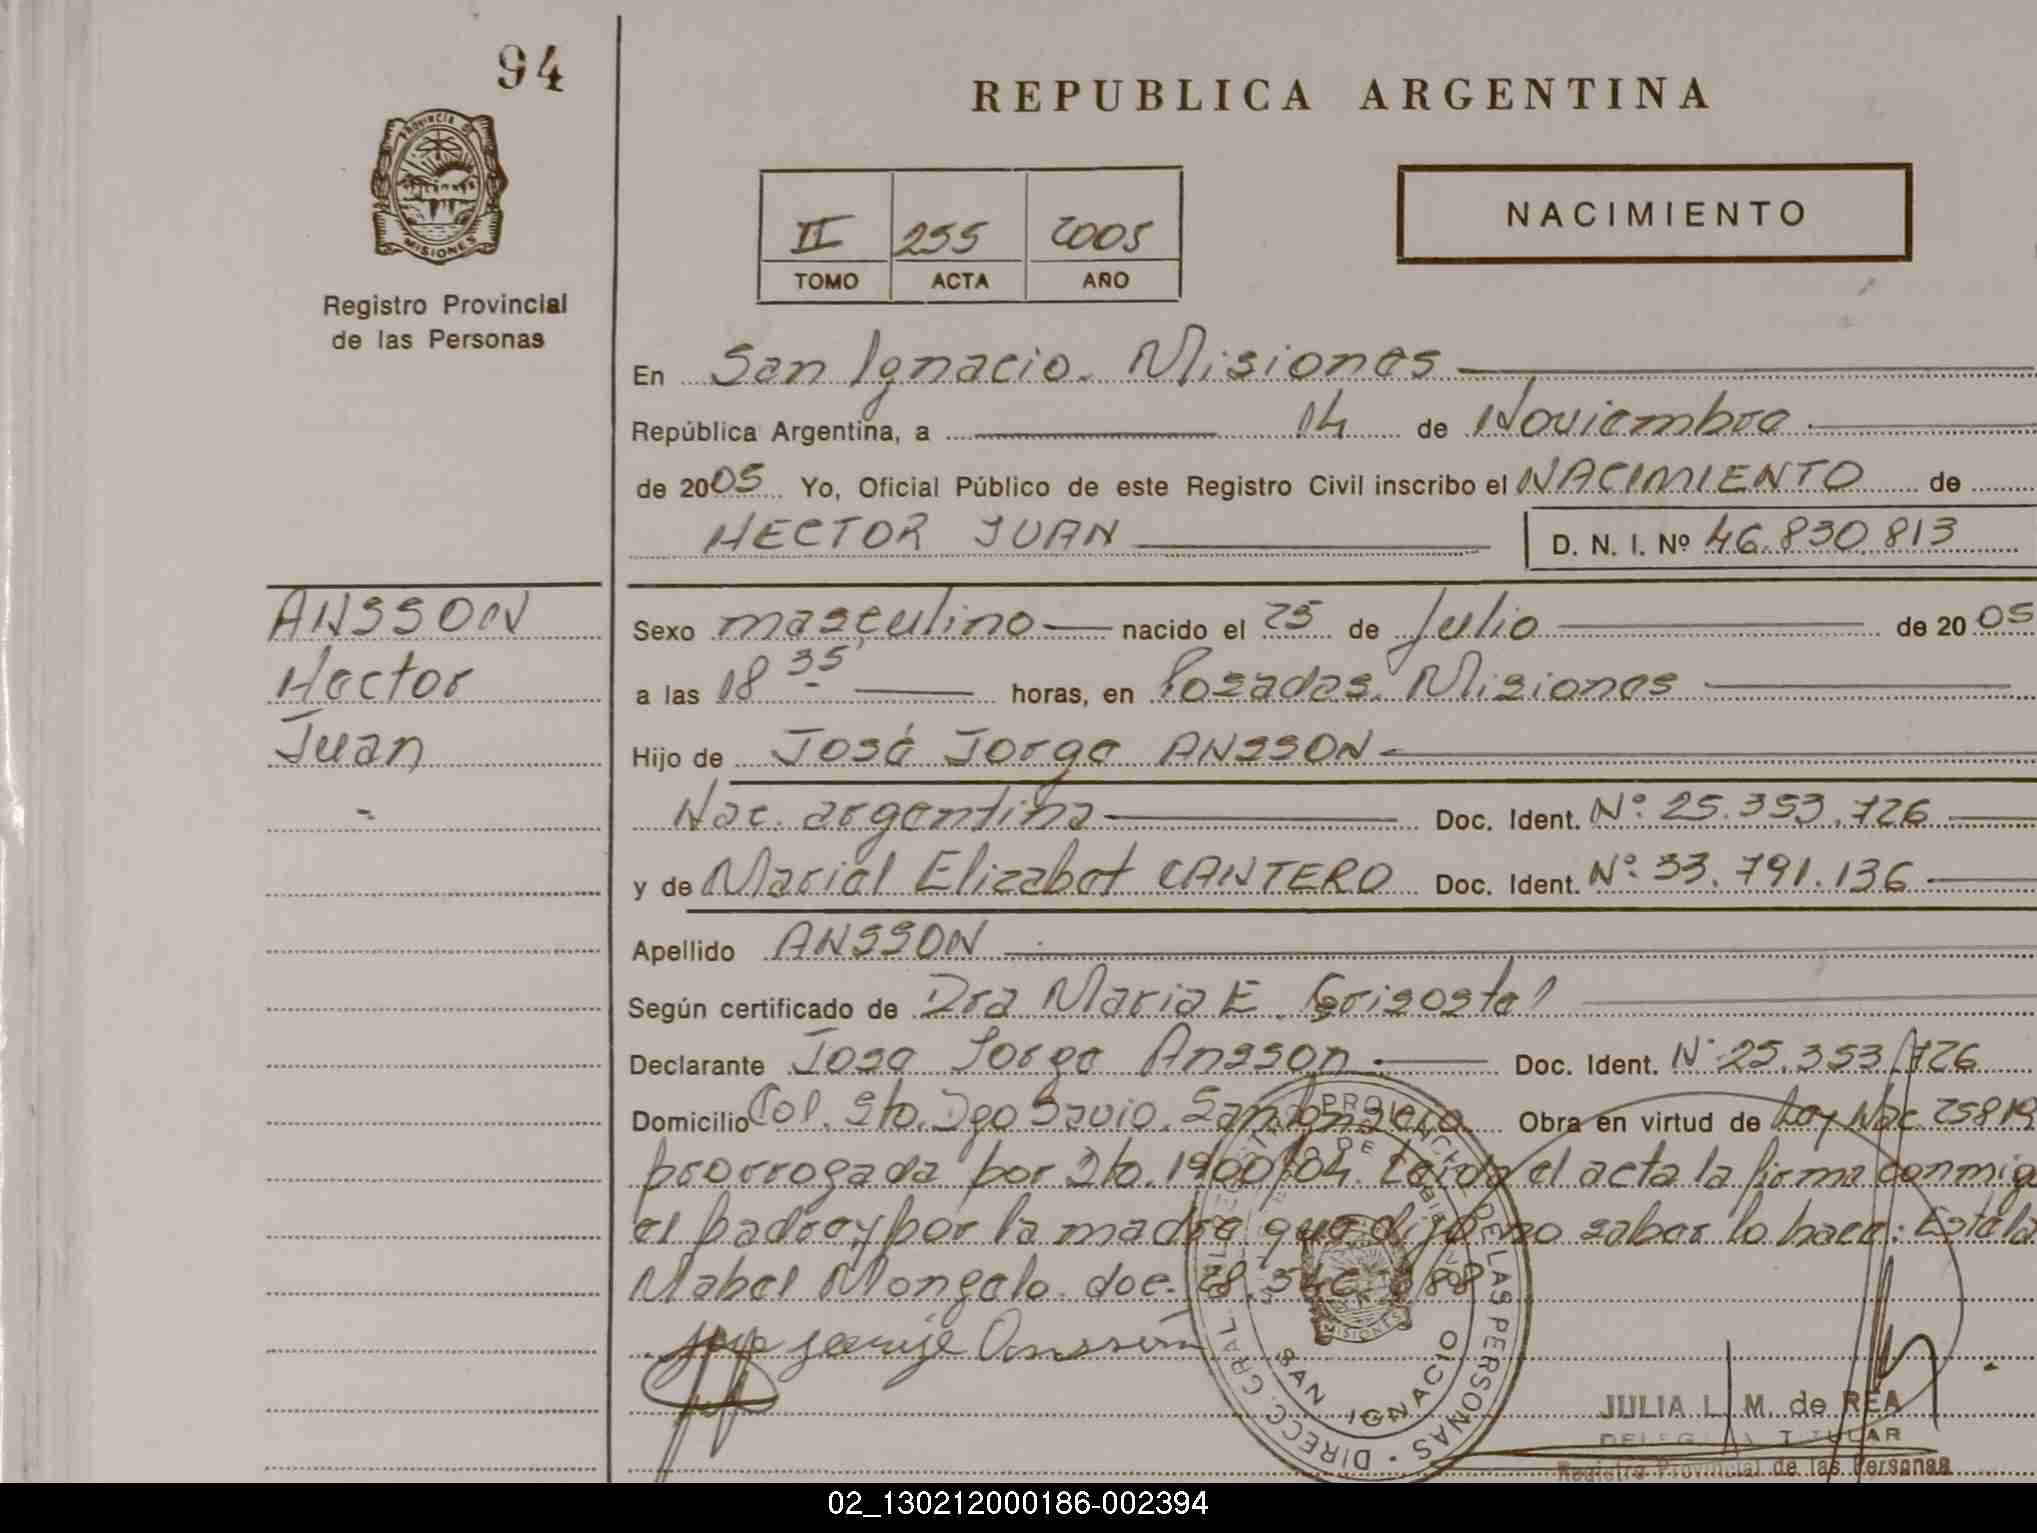 94
REPUBLICA ARGENTINA
PROVINCIA DE
MISIONES
Registro Provincial
de las Personas
NACIMIENTO
II 255 2005
TOMO ACTA AÑO
En San Ignacio. Misiones
República Argentina, a 14 de Noviembre
de 2005 Yo, Oficial Público de este Registro Civil inscribo el NACIMIENTO de
HECTOR JUAN D. N. I. Nº 46.830.813
ANSSON
Hector
Juan
Sexo masculino nacido el 25 de Julio de 2005
a las 18 35 horas, en Posadas. Misiones
Hijo de José Jorge ANSSON
Nac. argentina Doc. Ident. Nº 25.353.726
y de Mariel Elizabet CANTERO Doc. Ident. Nº 33.791.136
Apellido ANSSON
Según certificado de Dra Maria E.
Declarante Jose Jorge Ansson Doc. Ident. Nº 25.353.726
Domicilio Col. Sto. Dgo Savio. San Ignacio. Obra en virtud de Ley Nac. 25819
prorrogada por Dto. 1900/04. Leida el acta la firma conmigo
el padre y por la madre que dijo no saber lo hace: Estela
Mabel Mongelo. doc. 28.
Jose Jorge Ansson
DIRECC. GRAL. PROVINCIAL DE LAS PERSONAS
SAN IGNACIO
MISIONES
JULIA L. M. de REA
DELEGADA TITULAR
Registro Provincial de las Personas
02_130212000186-002394